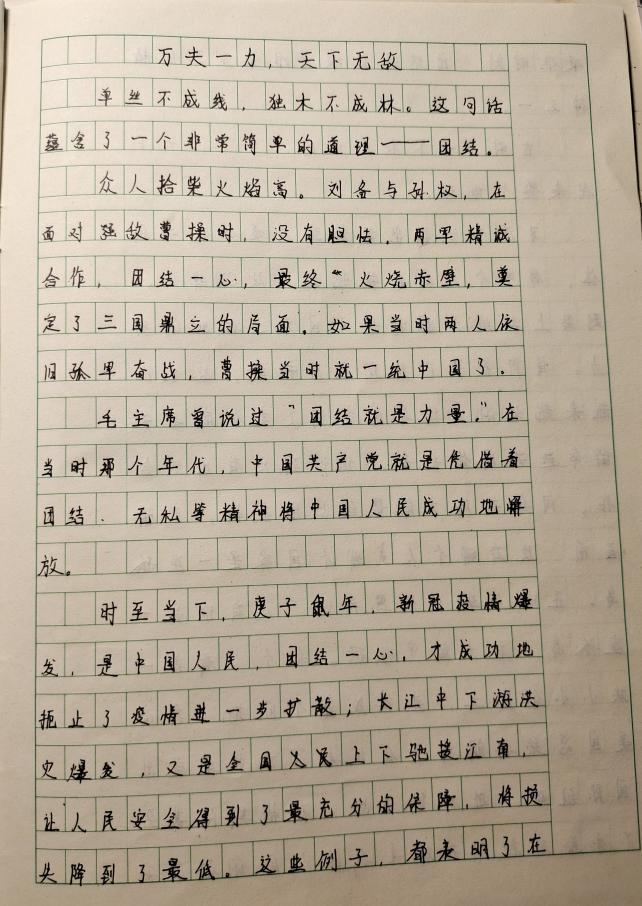 万夫一力，天下无敌
单丝不成线，独木不成林。这句话
蕴含了一个非常简单的道理——团结。
众人拾柴火焰高。刘备与孙权，在
面对强敌曹操时，没有胆怯，两军精诚
合作，团结一心，最终“火烧赤壁，奠
定了三国鼎立的局面。如果当时两人依
旧孤军奋战，曹操当时就一统中国了。
毛主席曾说过“团结就是力量。”在
当时那个年代，中国共产党就是凭借着
团结、无私等精神将中国人民成功地解
放。
时至当下，庚子鼠年，新冠疫情爆
发，是中国人民，团结一心，才成功地
扼止了疫情进一步扩散；长江中下游洪
灾爆发，又是全国人民上下驰援江南，
让人民安全得到了最充分的保障，将损
失降到了最低。这些例子，都表明了在